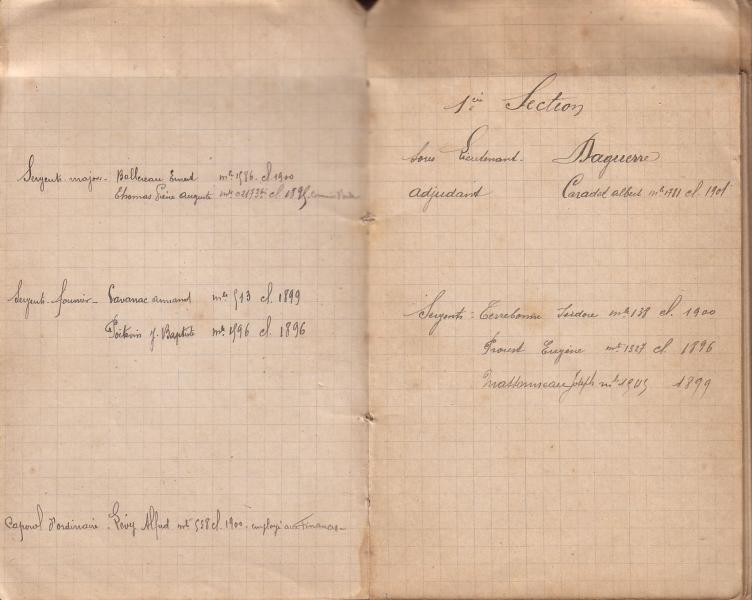 Sergents-majors- Ballereau Ernest mle 1586 cl 1900
Thomas Pierre Auguste mle cl 1895
Sergents-fourrier- Lavanac Armand mle 513 cl. 1899
Poitevin J. Baptiste mle 1596 cl. 1896
Caporal d'ordinaire - Lévy Alfred mle 538 cl. 1900 employé aux Finances-
1ère Section
Sous Lieutenant- Daguerre
adjudant Caradet albert mle 1781 cl. 1901
Sergents: Terrebonne Isidore mle 138 cl. 1900
Proust Eugène mle 1527 cl 1896
Joseph mle 1505 1899